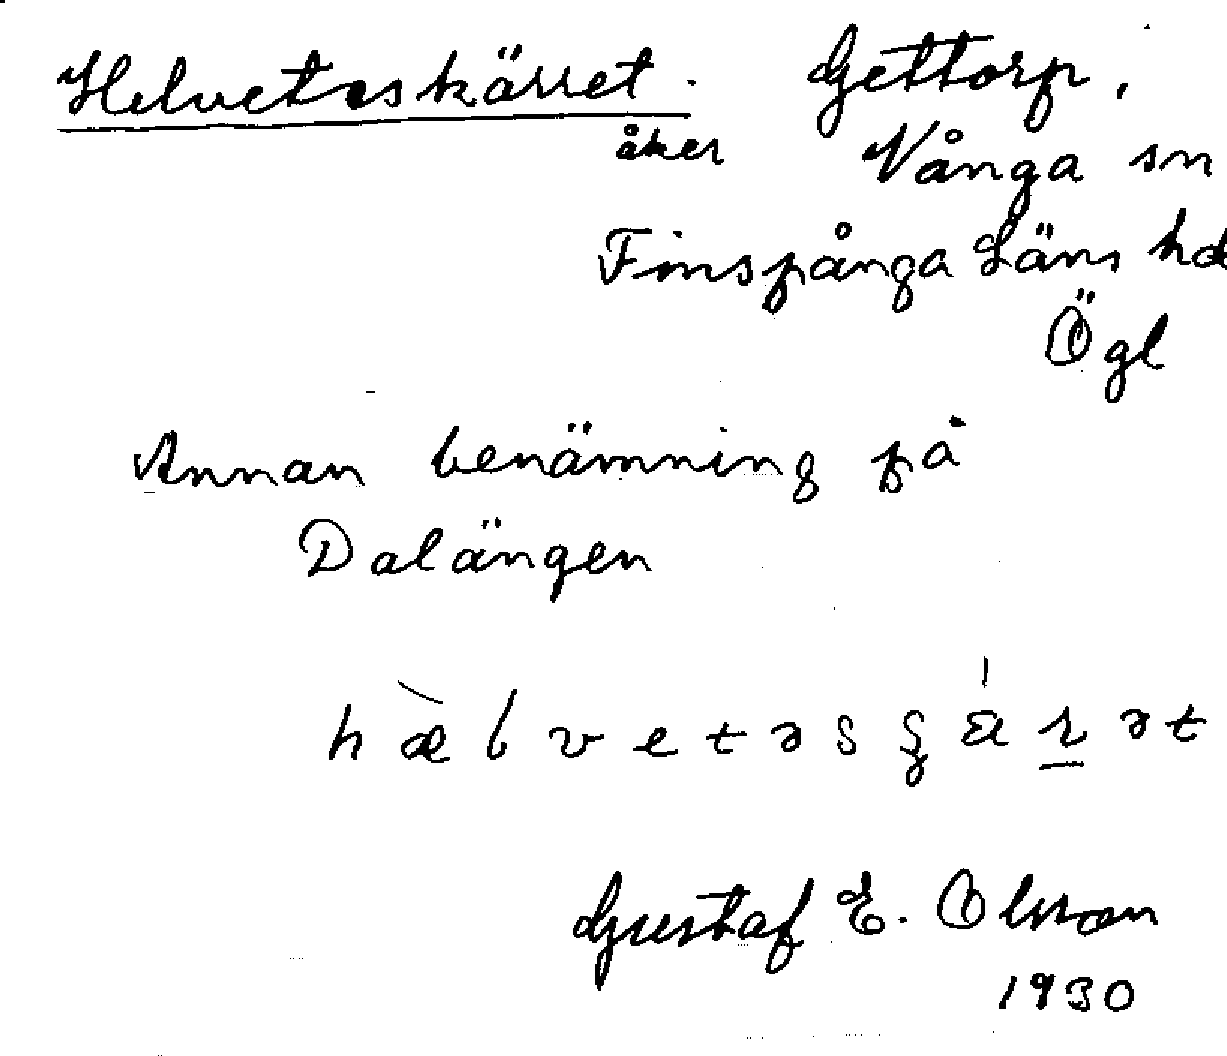 Helveteskärret. Gettorp,
åker Vånga sn
Finspånga Läns hd
Ögl
Annan benämning på
Dalängen
Gustaf E. Olsson
1930